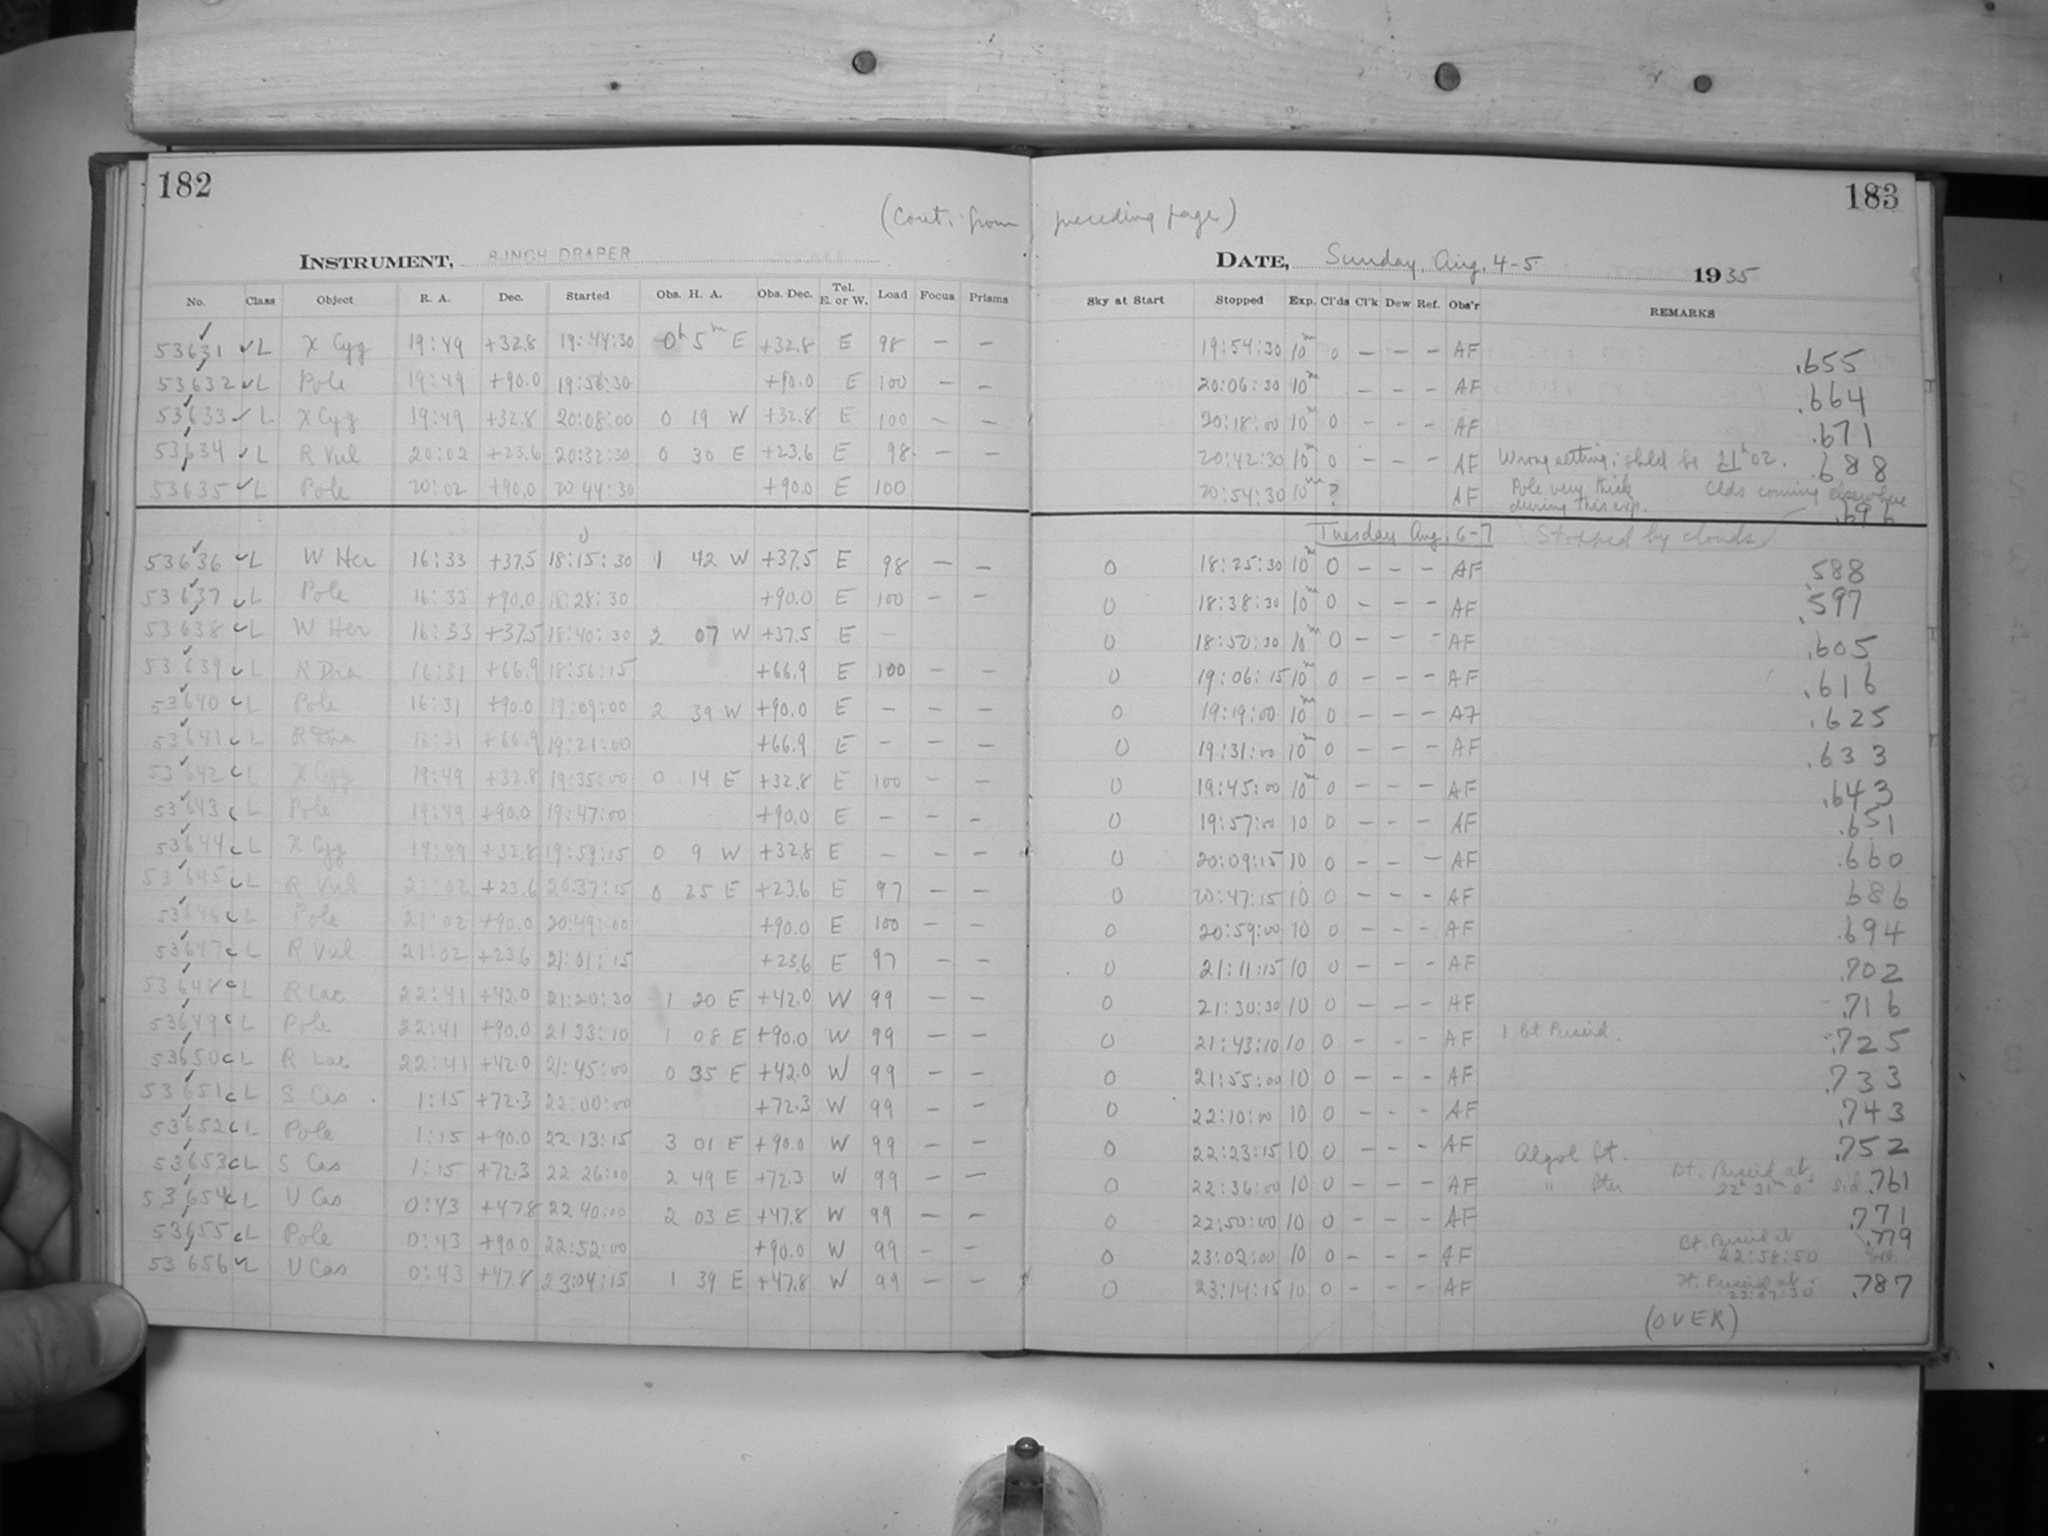 182
183
(Cont. from preceding page)
INSTRUMENT, 8 INCH DRAPER
DATE, Sunday, Aug, 4-5 1935
No. Class Object R. A. Dec. Started Obs. H. A. Obs. Dec. Tel. E. or W. Load Focus Prisms Sky at Start Stopped Exp. Cl'ds Cl'k Dew Ref. Obs'r REMARKS
53631 ✓ L X Cyg 19:49 +32.8 19:44:30 0h 5m E +32.8 E 98 – – 19:54:30 10m 0 – – – AF .655
53632 ✓ L Pole 19:49 +90.0 19:56:30 +90.0 E 100 – – 20:06:30 10m – – – AF .664
53633 ✓ L X Cyg 19:49 +32.8 20:08:00 0 19 W +32.8 E 100 – – 20:18:00 10m 0 – – – AF .671
53634 ✓ L R Vul 20:02 +23.6 20:32:30 0 30 E +23.6 E 98 – – 20:42:30 10m 0 – – – AF Wrong setting; shld be 21h 02. .688
53635 ✓ L Pole 20:02 +90.0 20 44:30 +90.0 E 100 20:54:30 10m ? AF Pole very thick during this exp. Clds coming elsewhere .696
Tuesday Aug. 6-7 (Stopped by clouds)
53636 ✓ L W Her 16:33 +37.5 18:15:30 1 42 W +37.5 E 98 – – 0 18:25:30 10m 0 – – – AF .588
53637 ✓ L Pole 16:33 +90.0 18:28:30 +90.0 E 100 – – 0 18:38:30 10m 0 – – – AF .597
53638 ✓ L W Her 16:33 +37.5 18:40:30 2 07 W +37.5 E – 0 18:50:30 10m 0 – – – AF .605
53639 ✓ L R Dra 16:31 +66.9 18:56:15 +66.9 E 100 – – 0 19:06:15 10m 0 – – – AF .616
53640 ✓ L Pole 16:31 +90.0 19:09:00 2 39 W +90.0 E – – – 0 19:19:00 10m 0 – – – AF .625
53641 ✓ L R Dra 16:31 +66.9 19:21:00 +66.9 E – – – 0 19:31:00 10m 0 – – – AF .633
53642 ✓ L X Cyg 19:49 +32.8 19:35:00 0 14 E +32.8 E 100 – – 0 19:45:00 10m 0 – – – AF .643
53643 ✓ L Pole 19:49 +90.0 19:47:00 +90.0 E – – – 0 19:57:00 10 0 – – – AF .651
53644 ✓ L X Cyg 19:49 +32.8 19:59:15 0 9 W +32.8 E – – – 0 20:09:15 10 0 – – – AF .660
53645 ✓ L R Vul 21:02 +23.6 20:37:15 0 25 E +23.6 E 97 – – 0 20:47:15 10 0 – – – AF .686
53646 ✓ L Pole 21:02 +90.0 20:49:00 +90.0 E 100 – – 0 20:59:00 10 0 – – – AF .694
53647 ✓ L R Vul 21:02 +23.6 21:01:15 +23.6 E 97 – – 0 21:11:15 10 0 – – – AF .702
53648 ✓ L R Lac 22:41 +42.0 21:20:30 1 20 E +42.0 W 99 – – 0 21:30:30 10 0 – – – AF .716
53649 ✓ L Pole 22:41 +90.0 21 33:10 1 08 E +90.0 W 99 – – 0 21:43:10 10 0 – – – AF 1 Bt Perseid. .725
53650 ✓ L R Lac 22:41 +42.0 21:45:00 0 35 E +42.0 W 99 – – 0 21:55:00 10 0 – – – AF .733
53651 ✓ L S Cas 1:15 +72.3 22:00:00 +72.3 W 99 – – 0 22:10:00 10 0 – – – AF .743
53652 ✓ L Pole 1:15 +90.0 22 13:15 3 01 E +90.0 W 99 – – 0 22:23:15 10 0 – – – AF Algol ft. .752
53653 ✓ L S Cas 1:15 +72.3 22 26:00 2 49 E +72.3 W 99 – – 0 22:36:00 10 0 – – – AF " fter Bt. Perseid at 22h 31m 0s sid. .761
53654 ✓ L U Cas 0:43 +47.8 22 40:00 2 03 E +47.8 W 99 – – 0 22:50:00 10 0 – – – AF .771
53655 ✓ L Pole 0:43 +90.0 22:52:00 +90.0 W 99 – – 0 23:02:00 10 0 – – – AF Bt. Perseid at 22:58:50 sid. .779
53656 ✓ L U Cas 0:43 +47.8 23:04:15 1 39 E +47.8 W 99 – – 0 23:14:15 10 0 – – – AF Perseid at 23:07:30 .787
(OVER)